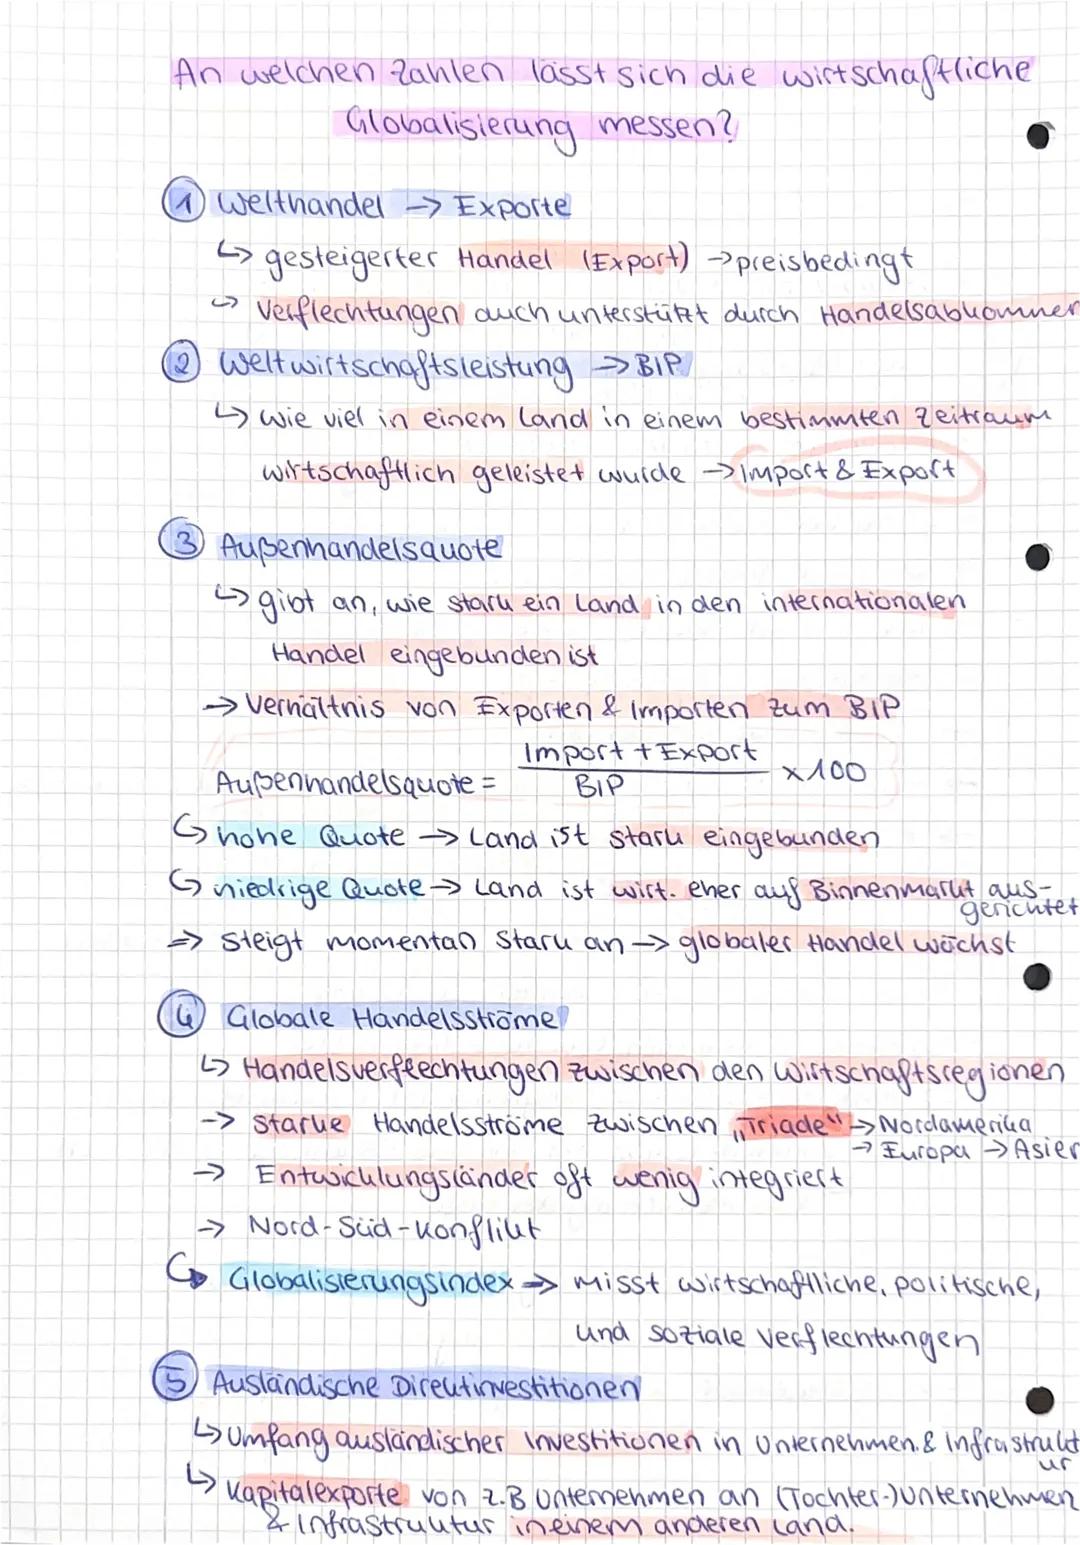 An welchen Zahlen lässt sich die wirtschaftliche
Globalisierung messen?
① Welthandel → Exporte
↳ gesteigerter Handel (Export) → preisbedingt
↳ Verflechtungen auch unterstützt durch Handelsabkommen
② Weltwirtschaftsleistung → BIP
↳ wie viel in einem Land in einem bestimmten Zeitraum
wirtschaftlich geleistet wurde → Import & Export
③ Außenhandelsquote
↳ gibt an, wie stark ein Land in den internationalen
Handel eingebunden ist
→ Verhältnis von Exporten & Importen zum BIP
Import + Export
Außenhandelsquote = x 100
BIP
↳ hohe Quote → Land ist stark eingebunden
↳ niedrige Quote → Land ist wirt. eher auf Binnenmarkt aus-
gerichtet
⇒ steigt momentan stark an → globaler Handel wächst
④ Globale Handelsströme
↳ Handelsverflechtungen zwischen den Wirtschaftsregionen
→ starke Handelsströme zwischen „Triade" → Nordamerika
→ Europa → Asien
→ Entwicklungsländer oft wenig integriert
→ Nord-Süd-Konflikt
↳ Globalisierungsindex → misst wirtschaftliche, politische,
und soziale Verflechtungen
⑤ Ausländische Direktinvestitionen
↳ Umfang ausländischer Investitionen in Unternehmen & Infrastrukt
ur
↳ Kapitalexporte von z.B Unternehmen an (Tochter-)Unternehmen
& Infrastruktur in einem anderen Land.